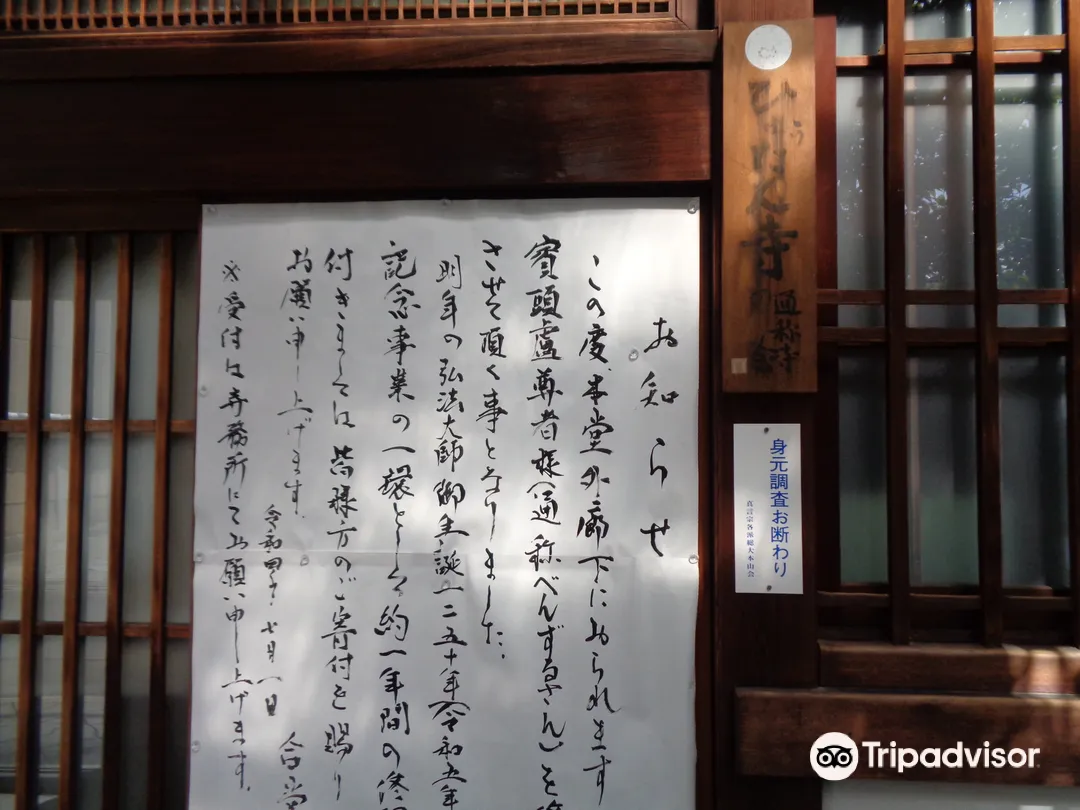 通称寺
身元調査お断わり
真言宗各派総大本山会
お知らせ
この度、本堂外廊下におられます
賓頭盧尊者様(通称べんずるさん)を
させて頂く事となりました。
明年の弘法大師御生誕一二五十年(令和五年
記念事業の一環として約一年間の修
付きましては皆様方のご寄付を賜り
お願い申し上げます。
令和四年七月一日
合掌
※受付は寺務所にてお願い申し上げます。
Tripadvisor